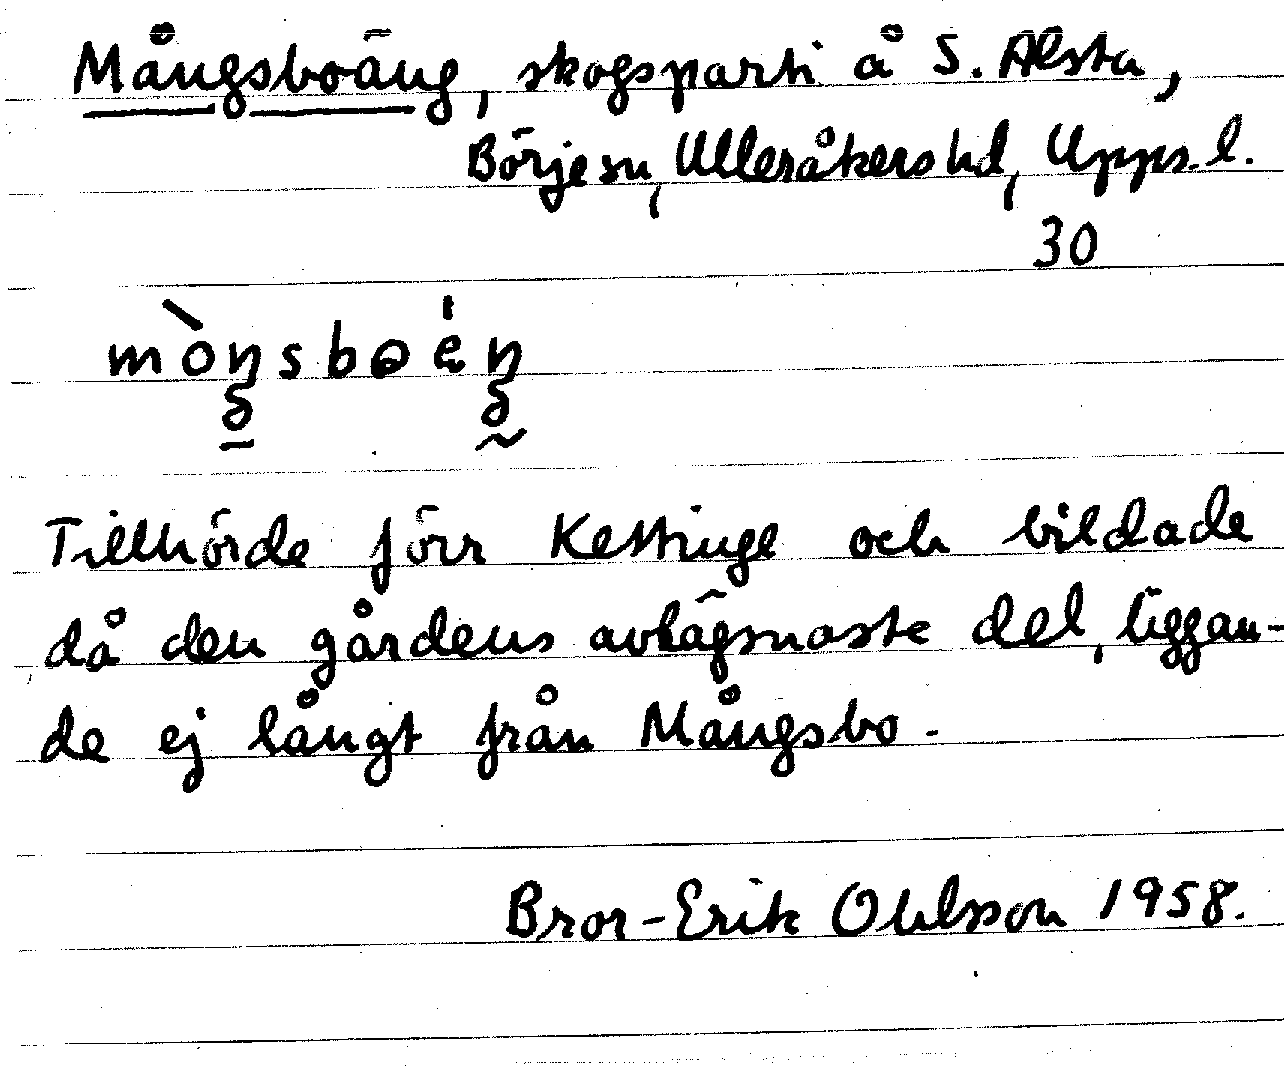 Mångsboäng, skogsparti å S. Alsta,
Börje sn, Ulleråkers hd, Upps. l.
30
mòŋsboéŋ
Tillhörde förr Kettinge och bildade
då den gårdens avlägsnaste del, liggan-
de ej långt från Mångsbo.
Bror-Erik Ohlsson 1958.